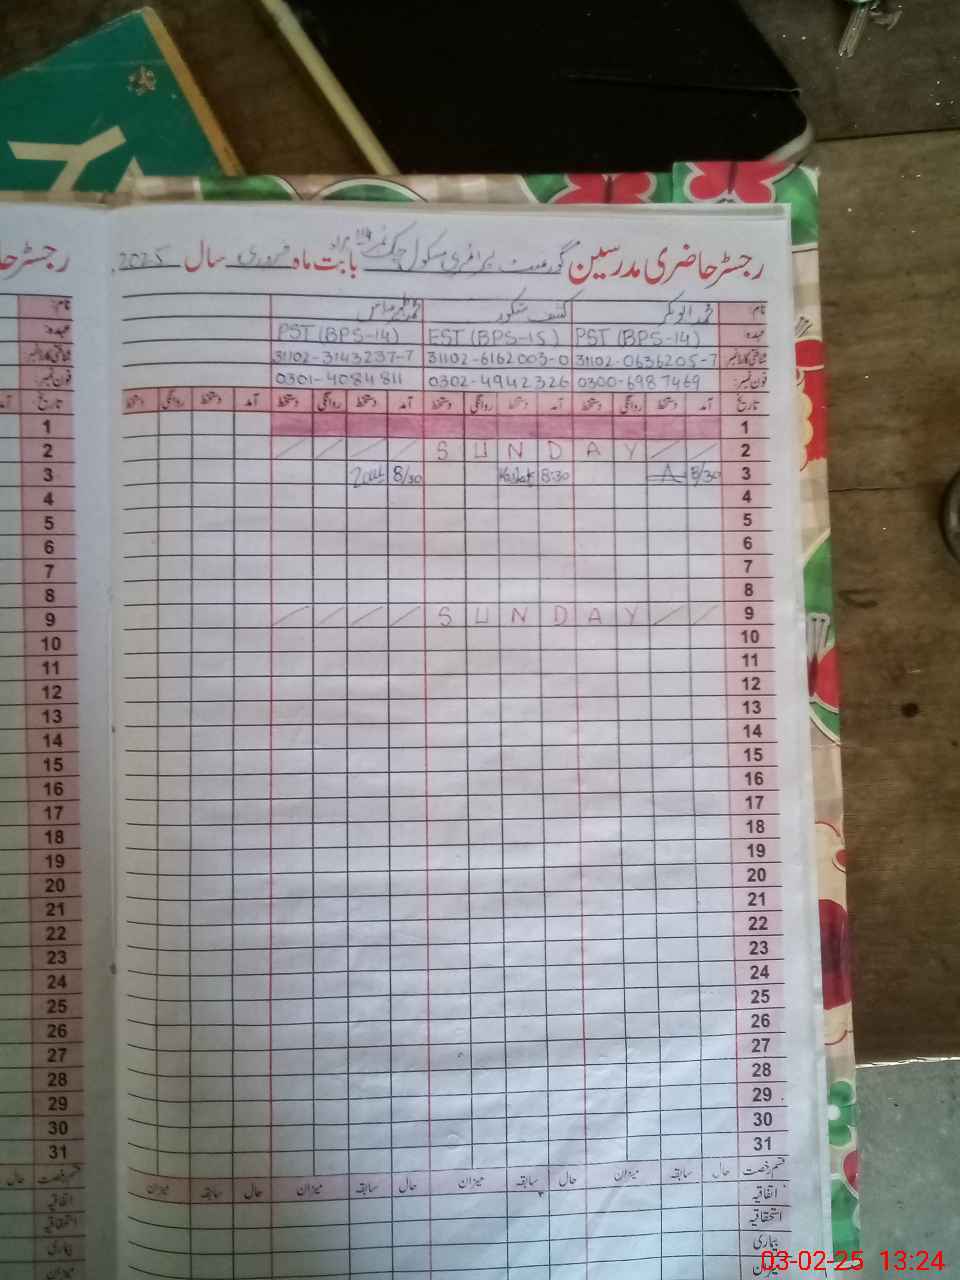 رجسٹر حاضری مدرسین گورنمنٹ پرائمری سکول چک نمبر 114 مراد بابت ماہ فروری سال 2025
رجسٹر حا
نام: محمد ابوبکر کشف شکور
عہدہ: PST (BPS-14) EST (BPS-15) PST (BPS-14)
شناختی کارڈ نمبر 31102-0636205-7 31102-6162003-0 31102-3143237-7
فون نمبر: 0300-6987469 0302-4942326 0301-4084811
تاریخ آمد دستخط روانگی دستخط آمد دستخط روانگی دستخط آمد دستخط روانگی دستخط آمد دستخط روانگی دستخط
1 1
2 SUNDAY 2
3 8/30 8:30 A 8/30 3
4 4
5 5
6 6
7 7
8 8
9 SUNDAY 9
10 10
11 11
12 12
13 13
14 14
15 15
16 16
17 17
18 18
19 19
20 20
21 21
22 22
23 23
24 24
25 25
26 26
27 27
28 28
29 29
30 30
31 31
قسم رخصت حال سابقہ میزان حال سابقہ میزان حال سابقہ میزان حال سابقہ میزان
قسم رخصت حال
اتفاقیہ اتفاقیہ
استحقاقیہ استحقاقیہ
بیماری بیماری
میزان میزان
03-02-25 13:24